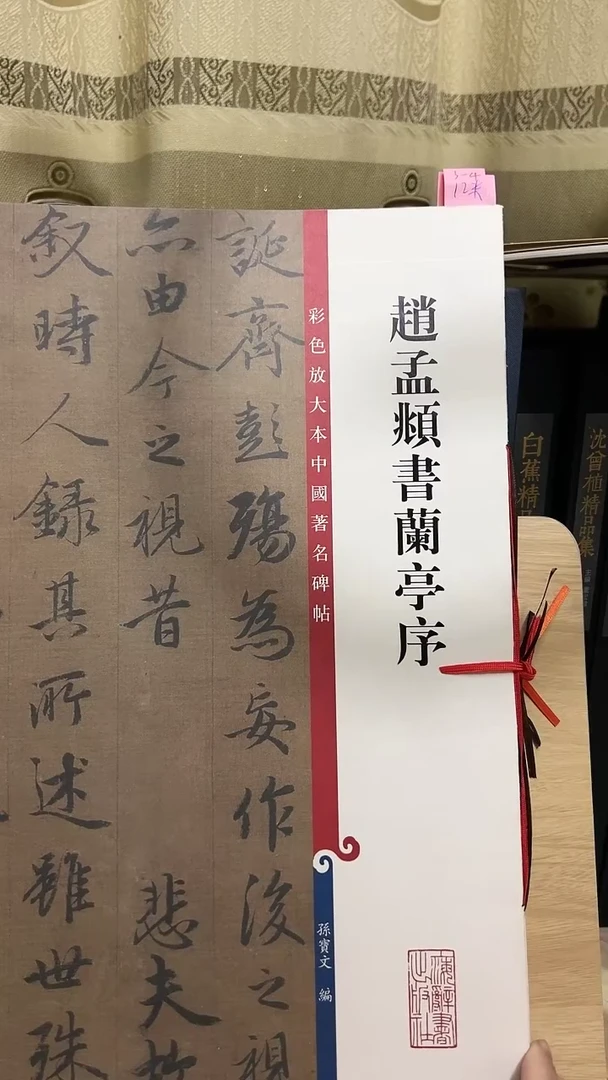 12米
趙孟頫書蘭亭序
彩色放大本中國著名碑帖
孫寶文 編
上海辭書
出版社
誕齊彭殤為妄作後之視
亦由今之視昔 悲夫故
叙時人録其所述雖世殊
沈曾植精品集
白蕉精品